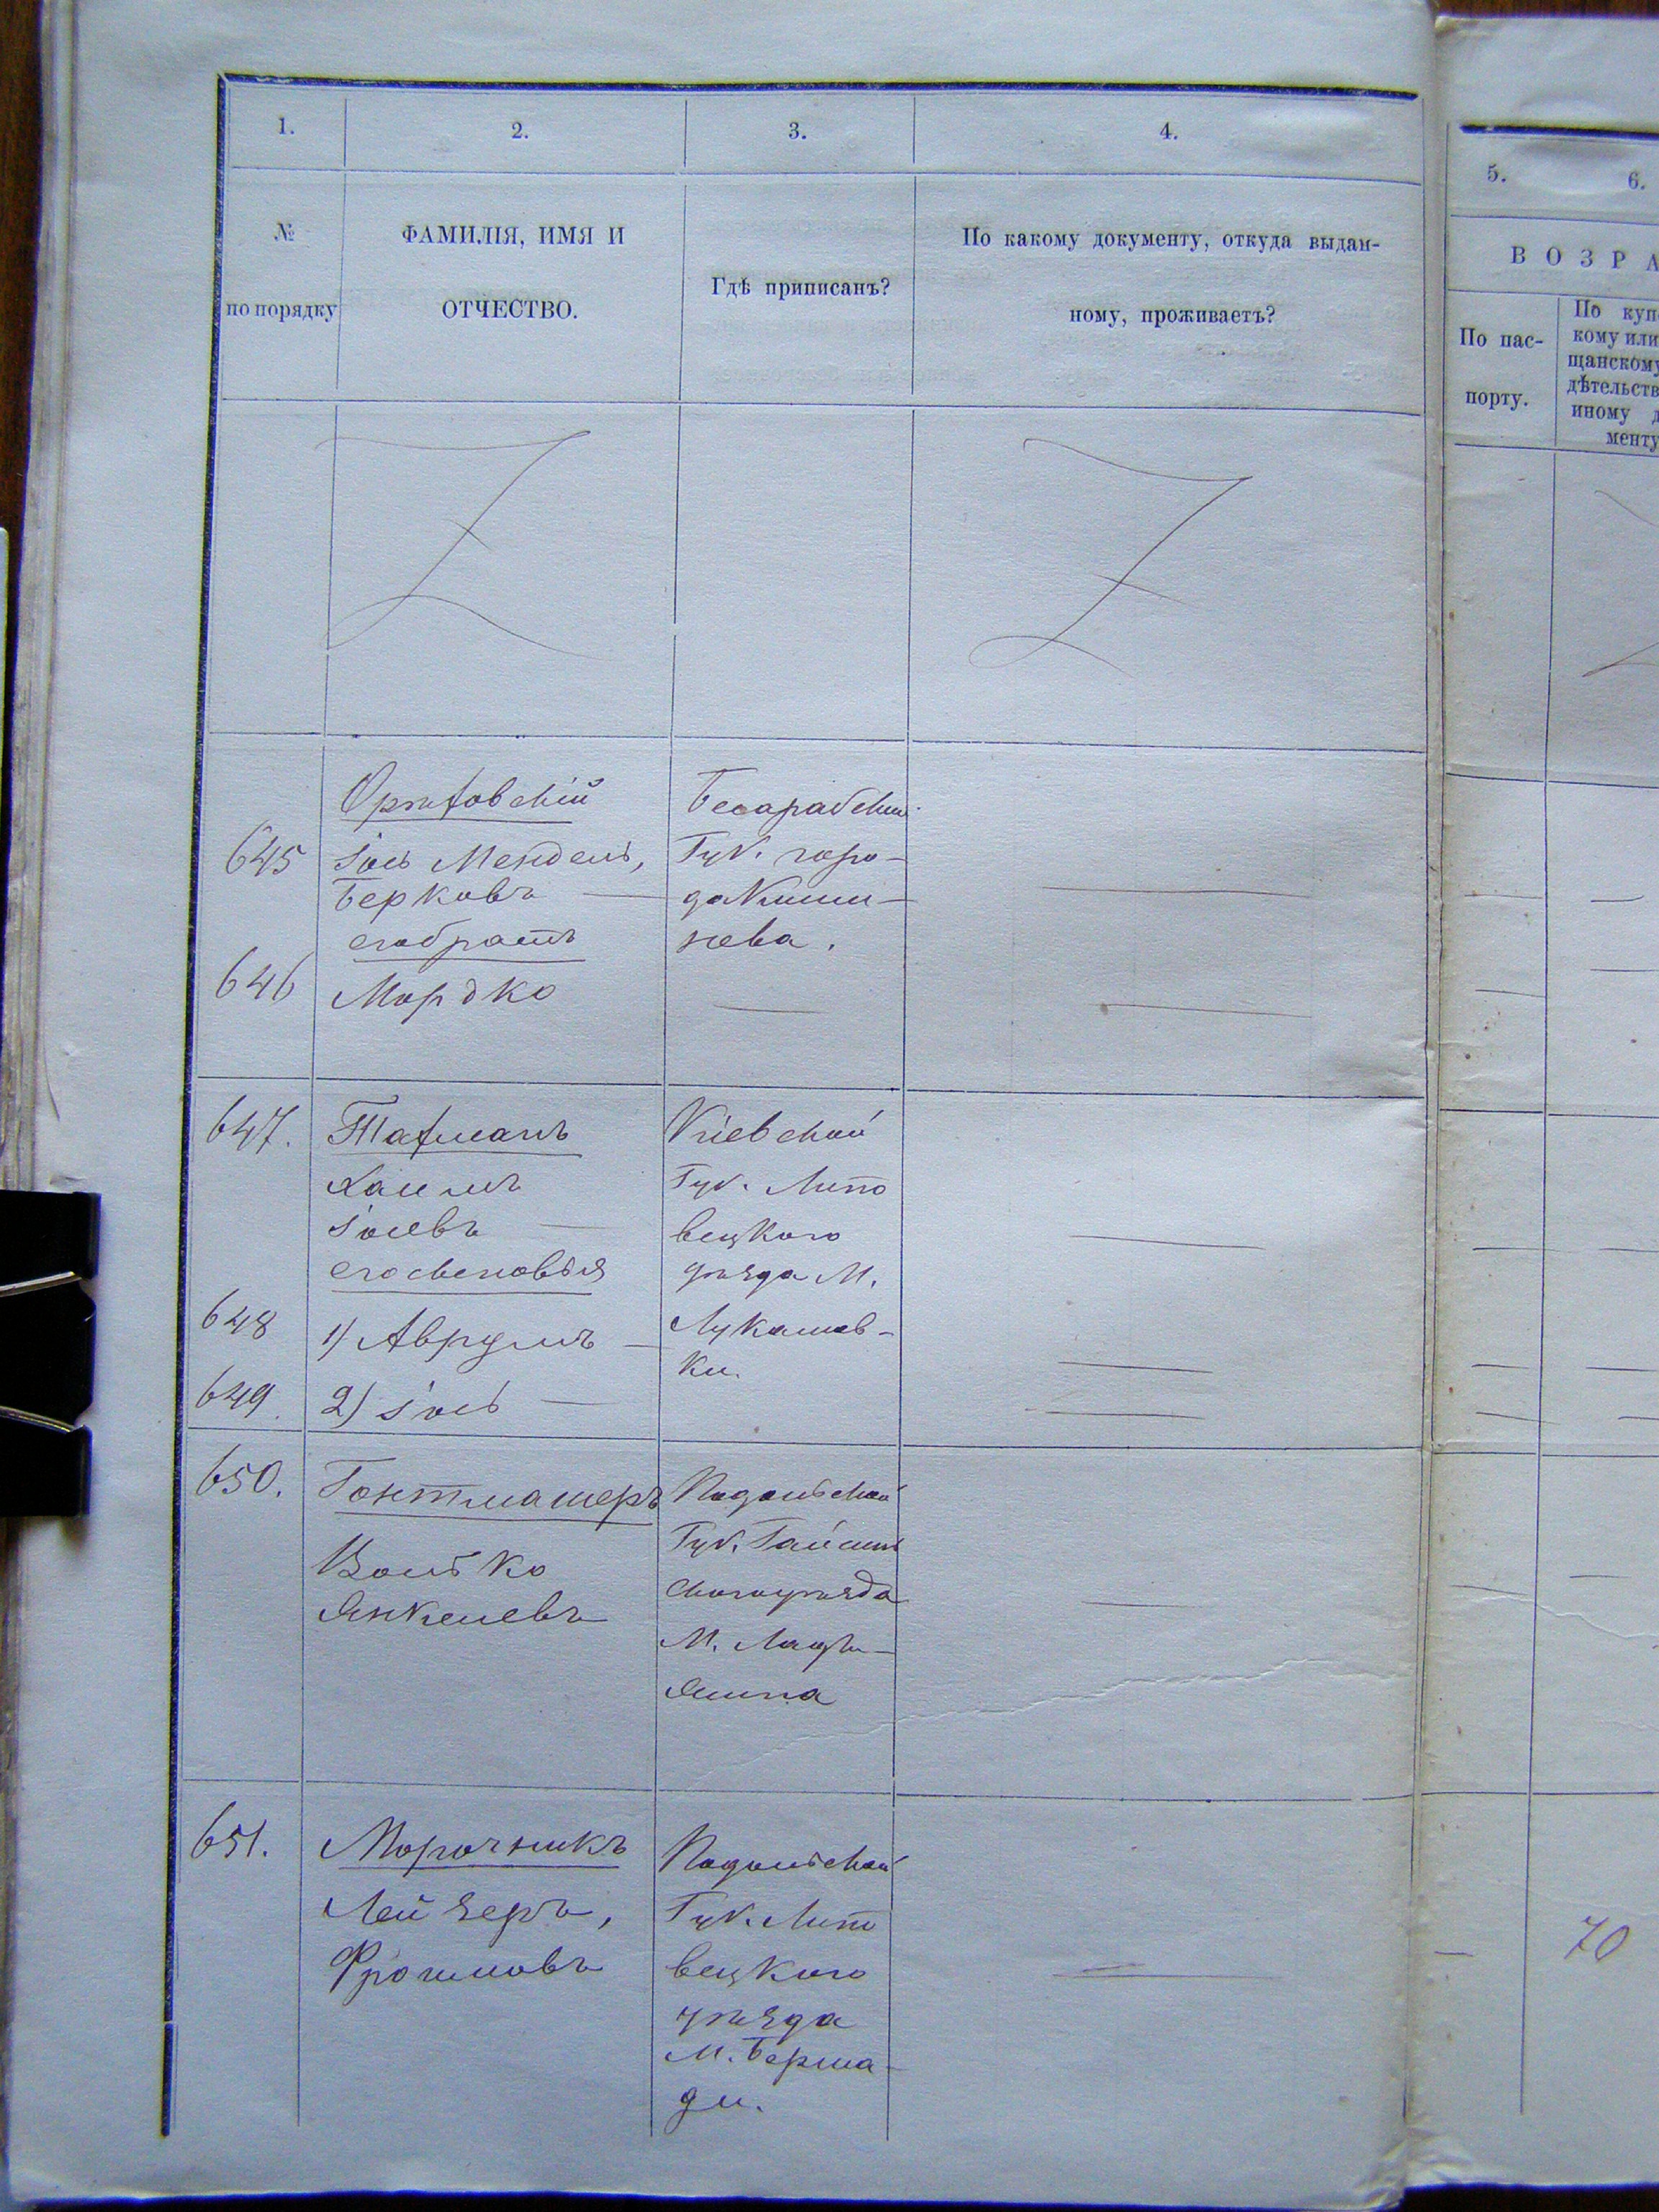 1. 2. 3. 4.
№ по порядку
ФАМИЛІЯ, ИМЯ И
ОТЧЕСТВО.
Гдѣ приписанъ?
По какому документу, откуда выдан-
ному, проживаетъ?
5. 6.
ВОЗРА
По пас-
порту.
По куп
кому или
щанскому
дѣтельств
иному д
менту
645
Іось Мендель,
Берковъ
его братъ
Бесарабской
Губ. горо-
да Киши-
нева.
646 Мордко
647.
Хаимъ
Іосевъ
его сыновья
Кіевской
Губ. Липо
вецкого
уѣзда М.
Лукашев-
ки.
648 1) Аврумъ
649 2) Іось
650. Гонтмашеръ
Волько
Янкелевъ
Подольской
Губ. Гайсин
ского уѣзда
М.
651. Морочникъ
Лейзеръ,
Фроимовъ
Подольской
Губ. Липо
вецкого
уѣзда
М. Берша-
ди.
70